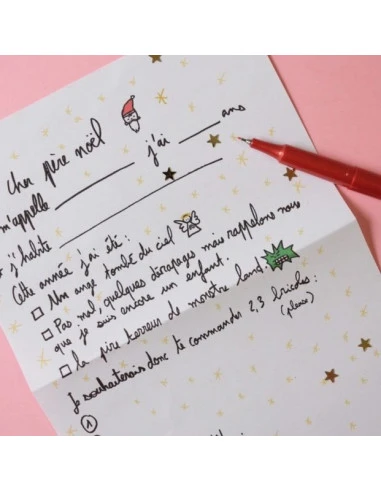 Cher père noël
m'appelle j'ai ans
j'habite
Cette année j'ai été :
□ Un ange tombé du ciel
□ Pas mal, quelques dérapages mais rappelons nous
que je suis encore un enfant.
□ la pire terreur de monstre land.
Je souhaiterais donc te commander 2,3 bricoles :
(please)
①